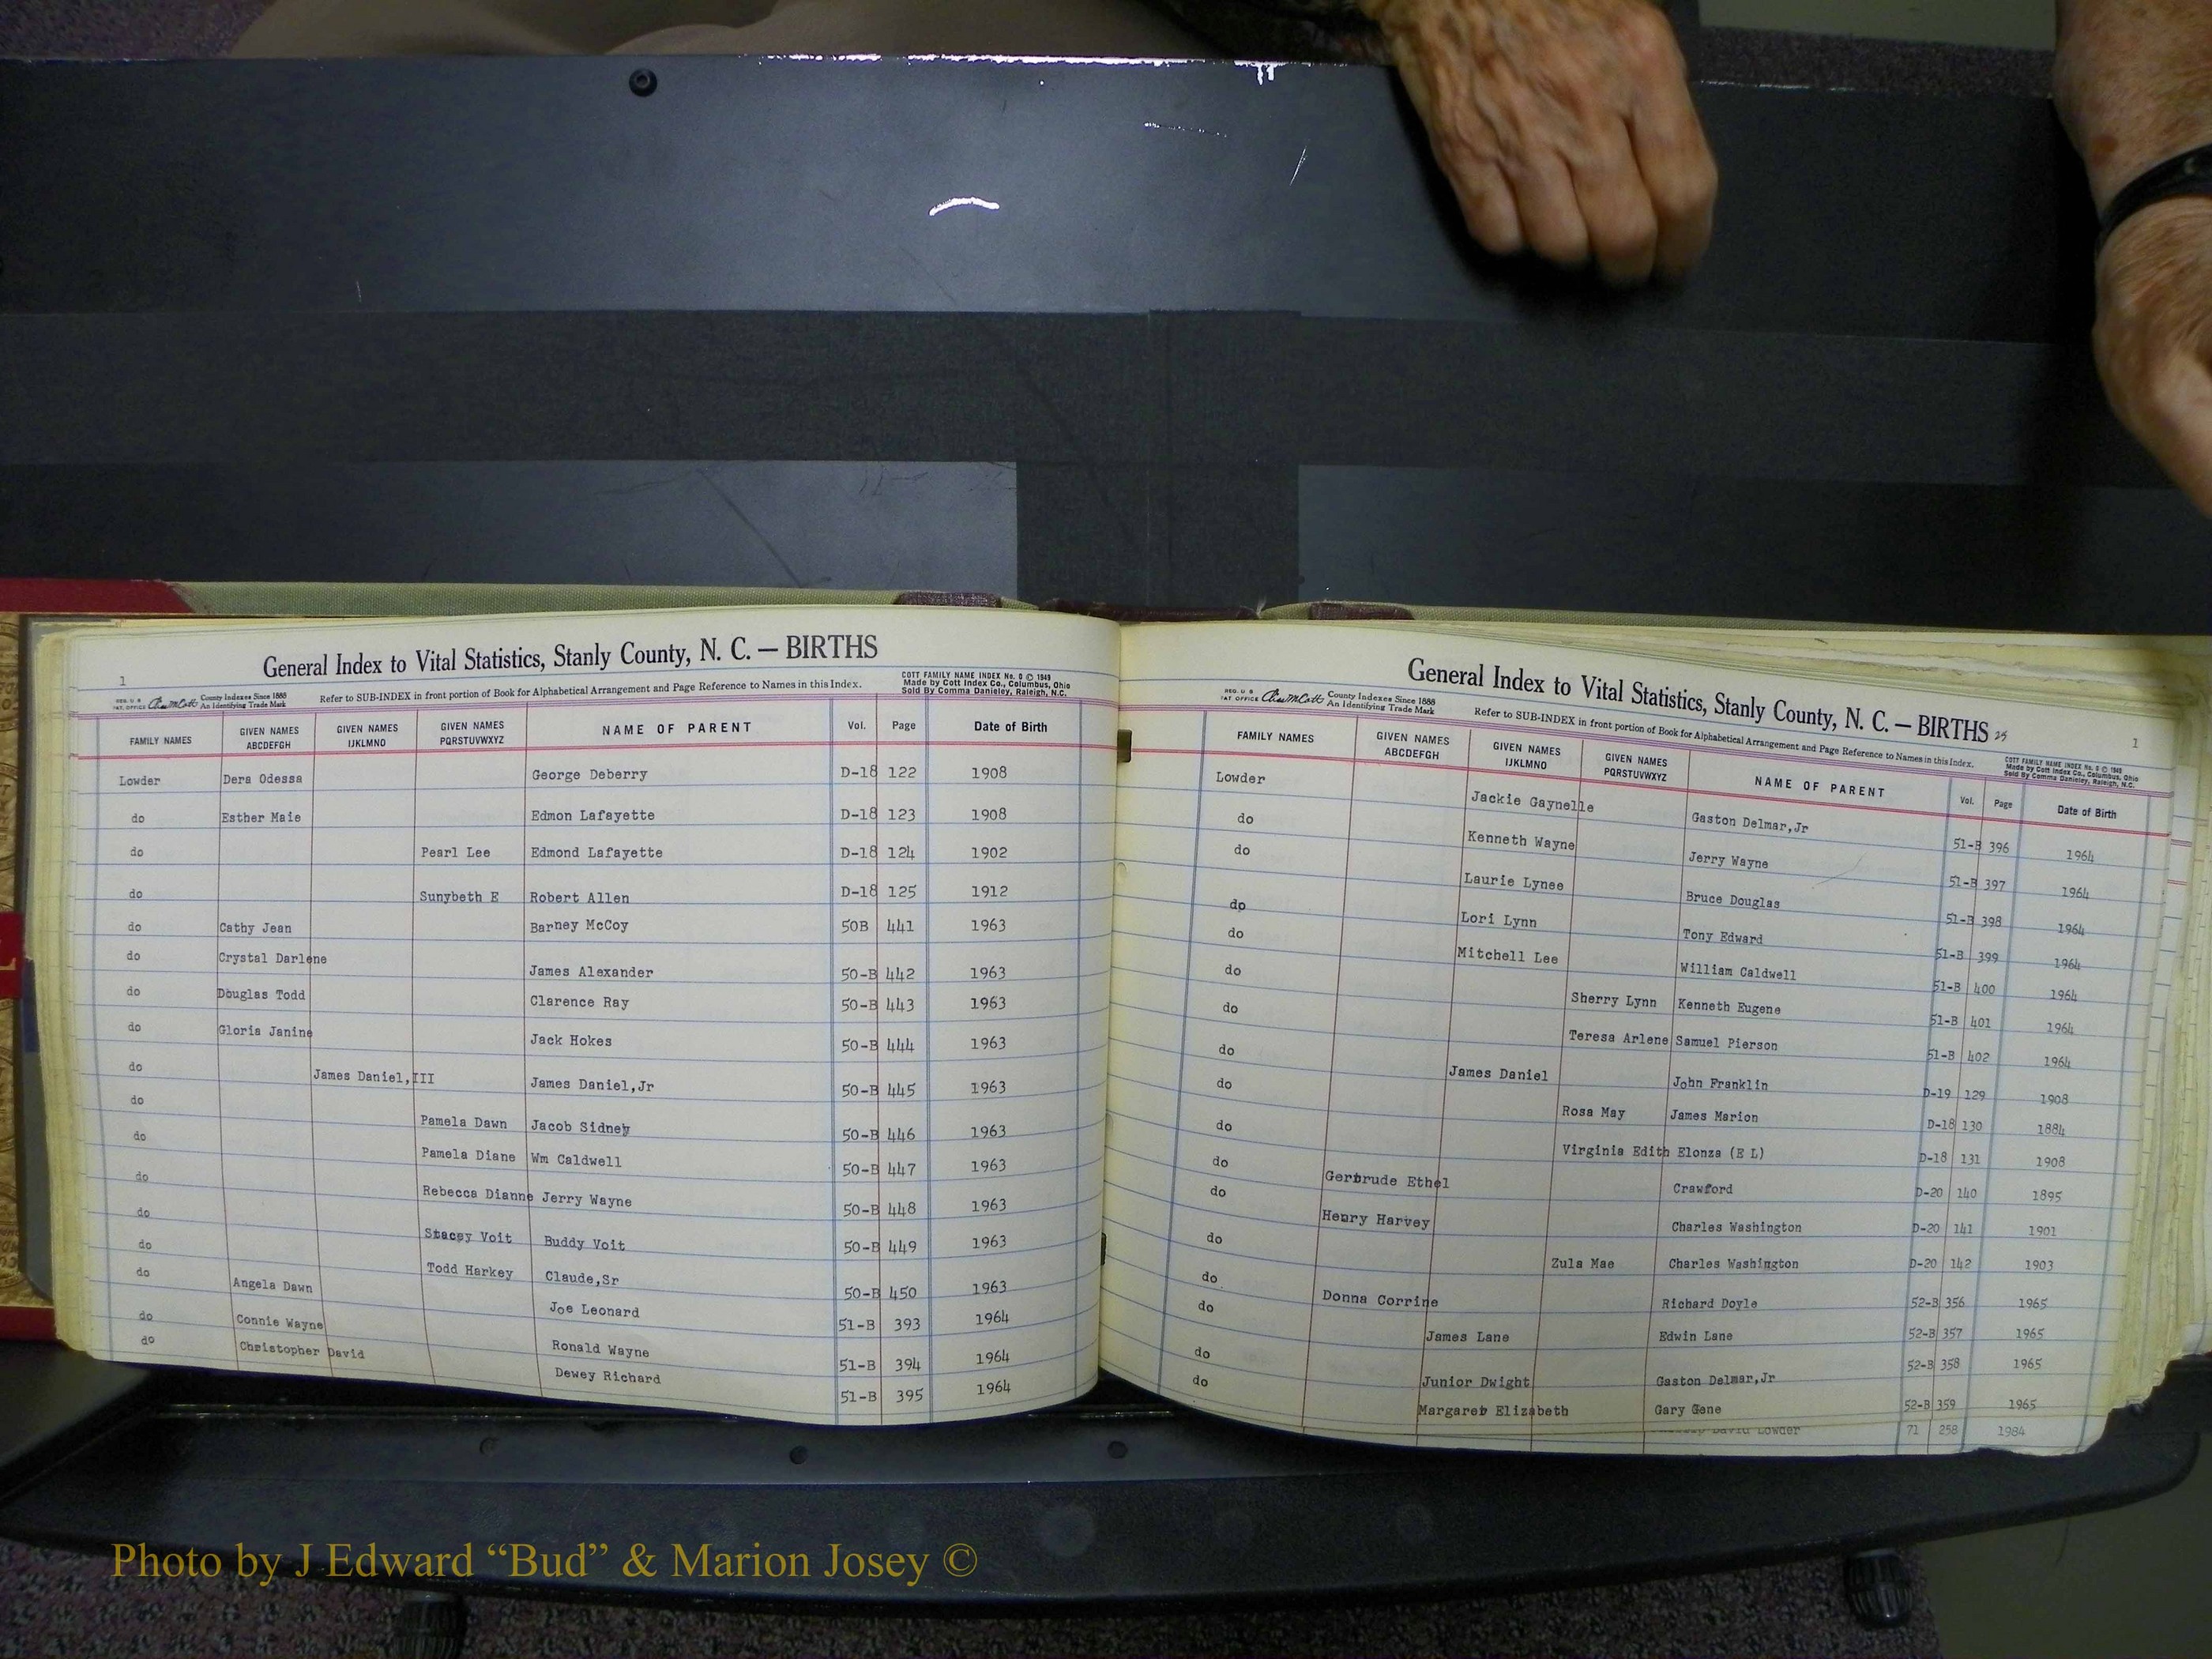 General Index to Vital Statistics, Stanly County, N. C. — BIRTHS
1
REG. U. S. PAT. OFFICE County Indexes Since 1888 An Identifying Trade Mark Refer to SUB-INDEX in front portion of Book for Alphabetical Arrangement and Page Reference to Names in this Index. COTT FAMILY NAME INDEX No. 0 © 1949 Made by Cott Index Co., Columbus, Ohio Sold By Comma Danieley, Raleigh, N.C.
FAMILY NAMES GIVEN NAMES ABCDEFGH GIVEN NAMES IJKLMNO GIVEN NAMES PQRSTUVWXYZ NAME OF PARENT Vol. Page Date of Birth
Lowder Dera Odessa George Deberry D-18 122 1908
do Esther Maie Edmon Lafayette D-18 123 1908
do Pearl Lee Edmond Lafayette D-18 124 1902
do Sunybeth E Robert Allen D-18 125 1912
do Cathy Jean Barney McCoy 50B 441 1963
do Crystal Darlene James Alexander 50-B 442 1963
do Douglas Todd Clarence Ray 50-B 443 1963
do Gloria Janine Jack Hokes 50-B 444 1963
do James Daniel,III James Daniel,Jr 50-B 445 1963
do Pamela Dawn Jacob Sidney 50-B 446 1963
do Pamela Diane Wm Caldwell 50-B 447 1963
do Rebecca Dianne Jerry Wayne 50-B 448 1963
do Stacey Voit Buddy Voit 50-B 449 1963
do Todd Harkey Claude,Sr 50-B 450 1963
do Angela Dawn Joe Leonard 51-B 393 1964
do Connie Wayne Ronald Wayne 51-B 394 1964
do Christopher David Dewey Richard 51-B 395 1964
General Index to Vital Statistics, Stanly County, N. C. — BIRTHS 25
1
REG. U. S. PAT. OFFICE County Indexes Since 1888 An Identifying Trade Mark Refer to SUB-INDEX in front portion of Book for Alphabetical Arrangement and Page Reference to Names in this Index. COTT FAMILY NAME INDEX No. 0 © 1949 Made by Cott Index Co., Columbus, Ohio Sold By Comma Danieley, Raleigh, N.C.
FAMILY NAMES GIVEN NAMES ABCDEFGH GIVEN NAMES IJKLMNO GIVEN NAMES PQRSTUVWXYZ NAME OF PARENT Vol. Page Date of Birth
Lowder Jackie Gaynelle Gaston Delmar,Jr 51-B 396 1964
do Kenneth Wayne Jerry Wayne 51-B 397 1964
do Laurie Lynee Bruce Douglas 51-B 398 1964
do Lori Lynn Tony Edward 51-B 399 1964
do Mitchell Lee William Caldwell 51-B 400 1964
do Sherry Lynn Kenneth Eugene 51-B 401 1964
do Teresa Arlene Samuel Pierson 51-B 402 1964
do James Daniel John Franklin D-19 129 1908
do Rosa May James Marion D-18 130 1884
do Virginia Edith Elonza (E L) D-18 131 1908
do Gertrude Ethel Crawford D-20 140 1895
do Henry Harvey Charles Washington D-20 141 1901
do Zula Mae Charles Washington D-20 142 1903
do Donna Corrine Richard Doyle 52-B 356 1965
do James Lane Edwin Lane 52-B 357 1965
do Junior Dwight Gaston Delmar,Jr 52-B 358 1965
do Margaret Elizabeth Gary Gene 52-B 359 1965
David Lowder 71 258 1984
Photo by J Edward “Bud” & Marion Josey ©